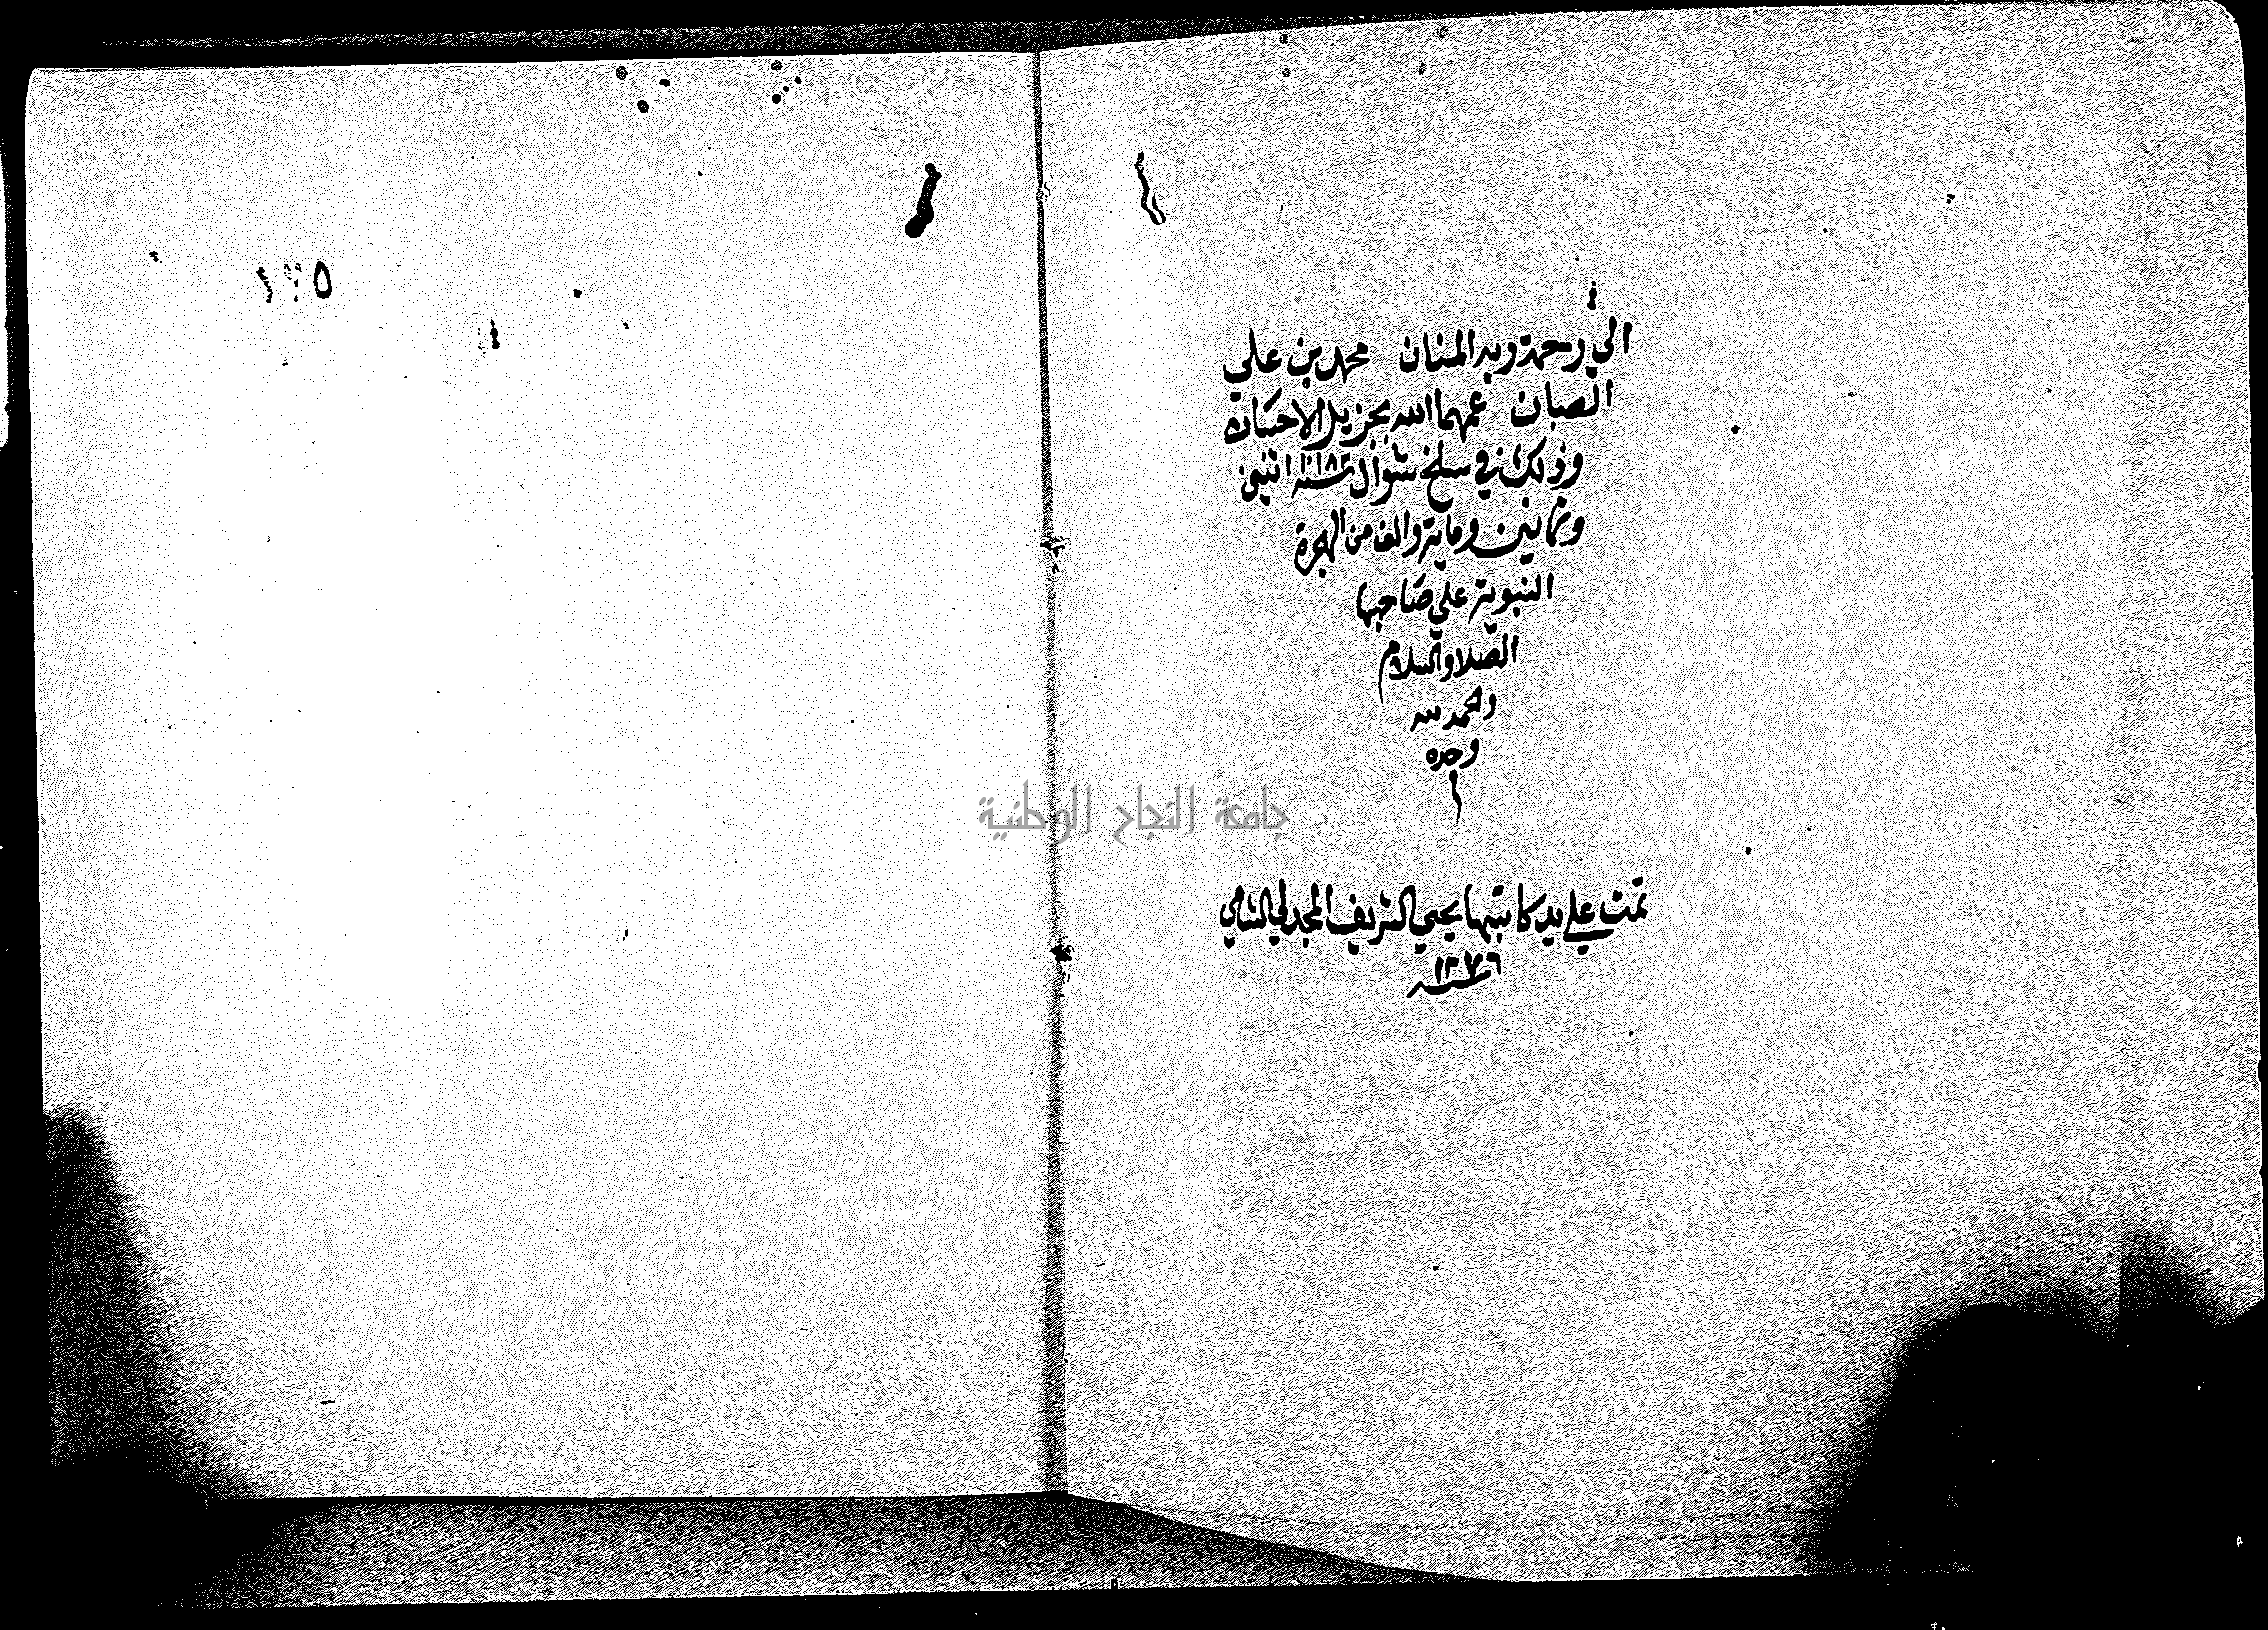 الي رحمة ربه المنان محمد بن علي
الصبان عمهما الله بجزيل الاحسان
وذلك في سلخ شوال سنة ١١٨٢ اثنين
وثمانين وماية والف من الهجرة
النبوية علي صاحبها
الصلاة والسلام
والحمد لله
وحده
تمت علي يد كاتبها يحيي الشريف المجدلي الشامي
سنة ١٢٧٦
جامعة النجاح الوطنية